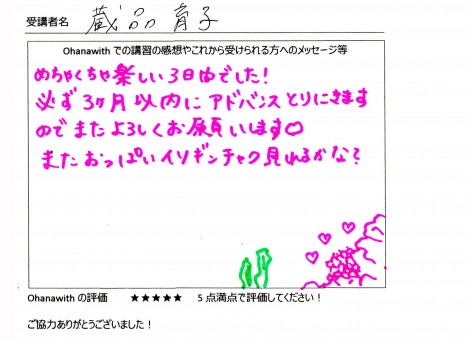 受講者名 蔵品 育子
Ohanawith での講習の感想やこれから受けられる方へのメッセージ等
めちゃくちゃ楽しい3日間でした！
必ず3ヶ月以内にアドバンスとりにきます
のでまたよろしくお願いします♡
またおっぱいイソギンチャク見れるかな？
Ohanawith の評価 ★★★★★ 5 点満点で評価してください！
ご協力ありがとうございました！